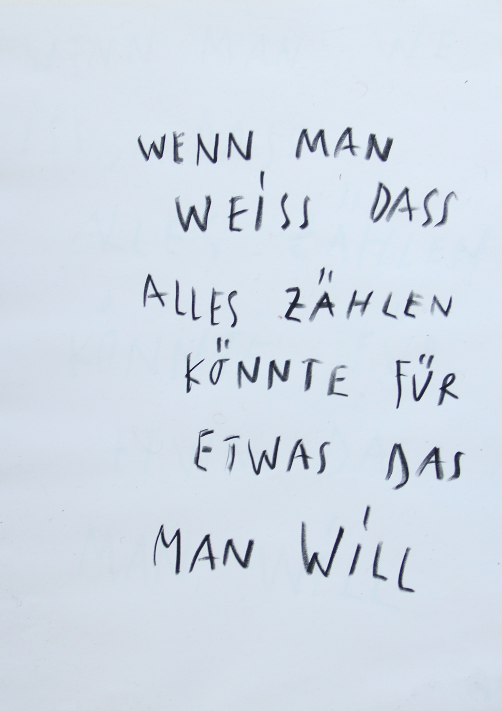 WENN MAN
WEISS DASS
ALLES ZÄHLEN
KÖNNTE FÜR
ETWAS DAS
MAN WILL